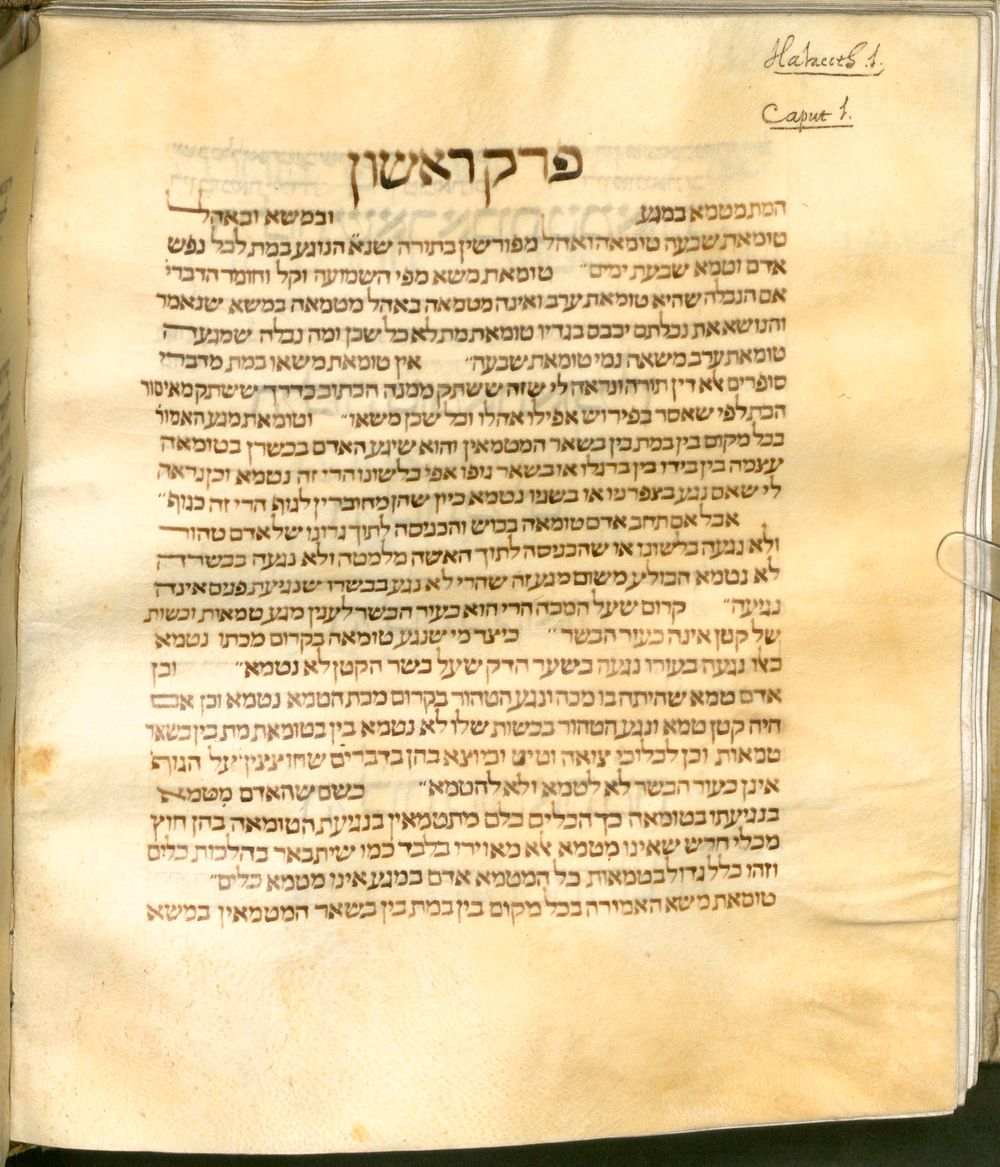 Halzeeth 1.
Caput 1.
פרק ראשון
המת מטמא במגע ובמשא ובאהל
טומאת שבעה טומאה ואהל מפורשין בתורה שנא הנוגע במת לכל נפש
אדם וטמא שבעת ימים״ טומאת משא מפי השמועה וקל וחומר הדברי׳
אם הנבלה שהיא טומאת ערב ואינה מטמאה באהל מטמאה במשא שנאמר
והנושא את נבלתם יכבס בגדיו טומאת מת לא כל שכן ומה נבלה שמגערה
טומאת ערב משאה נמי טומאת שבעה״ אין טומאת משאו במת מדברי
סופרים אלא דין תורה ונראה לי שזה ששתק ממנה הכתוב כדרך ששתק מאיסור
הבת לפי שאסר בפירוש אפילו אהלו וכל שכן משאו״ וטומאת מגע האמור
בכל מקום בין במת בין בשאר המטמאין והוא שיגע האדם בבשרו בטומאה
עצמה בין בידו בין ברגלו או בשאר גופו אפי בלשונו הרי זה נטמא וכן נראה
לי שאם נגע בצפרניו או בשניו נטמא כיון שהן מחוברין לגוף הרי זה כגוף״
אבל אם תחב אדם טומאה בכוש והכניסה לתוך גרונו של אדם טהור
ולא נגעה בלשונו או שהכניסה לתוך האשה מלמטה ולא נגעה בבשרה
לא נטמא הבולע משום מגע זה שהרי לא נגע בבשרו שנגיעת פנים אינה
נגיעה״ קרום שעל המכה הרי הוא כעור הבשר לענין מגע טמאות וכשות
של קטן אינה כעור הבשר״ כיצד מי שנגע טומאה בקרום מכתו נטמא
כאו נגעה בעורו נגעה בשער הדק שעל בשר הקטן לא נטמא״ וכן
אדם טמא שהיתה בו מכה ונגע הטהור בקרום מכת הטמא נטמא וכן אם
היה קטן טמא ונגע הטהור בכשות שלו לא נטמא בין בטומאת מת בין בשאר
טמאות וכן לכלוכי צואה וטיט וכיוצא בהן בדברים שחוצצין על הגוף
אינן כעור הבשר לא לטמא ולא להטמא״ כשם שהאדם מטמא
בנגיעתו בטומאה כך הכלים כלם מתטמאין בנגיעת הטומאה בהן חוץ
מכלי חרש שאינו מטמא אלא מאוירו בלבד כמו שיתבאר בהלכות כלים
וזהו כלל גדול בטמאות כל המטמא אדם במגע אינו מטמא כלים״
טומאת משא האמורה בכל מקום בין במת בין בשאר המטמאין במשא